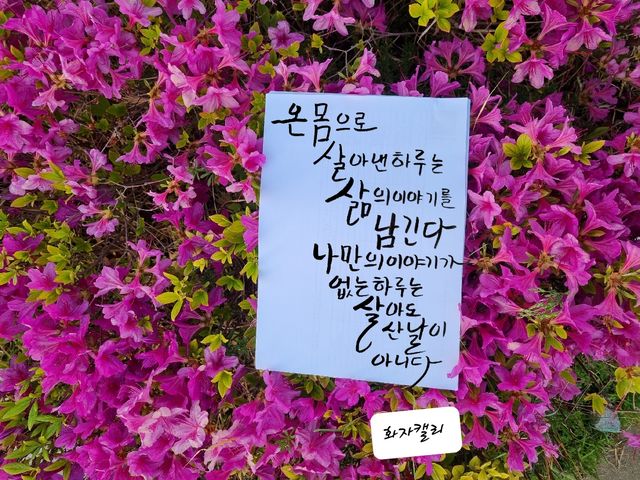 온몸으로
살아낸하루는
삶의이야기를
남긴다
나만의이야기가
없는하루는
살아도
산날이
아니다
화자캘리